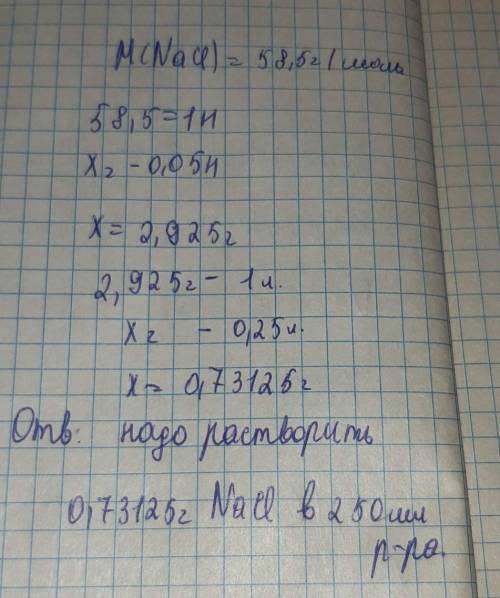 M(NaCl) = 58,5г/моль
58,5 = 1н
Xг - 0,05н
X = 2,925г
2,925г - 1л.
Xг - 0,25л.
X = 0,73125г
Отв: надо растворить
0,73125г NaCl в 250мл
р-ра.